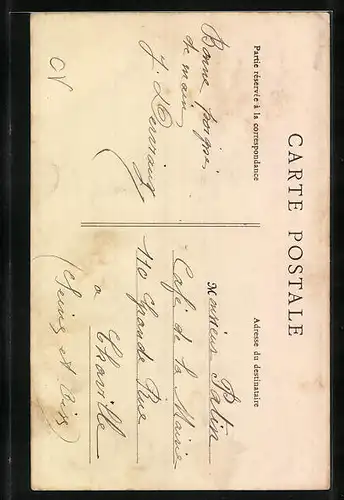 CARTE POSTALE
Partie réservée à la correspondance
Bonne poignée
de main
J.
Adresse du destinataire
Monsieur Patin
Café de la Mairie
110 Grande Rue
à
Chaville
(Seine et Oise)